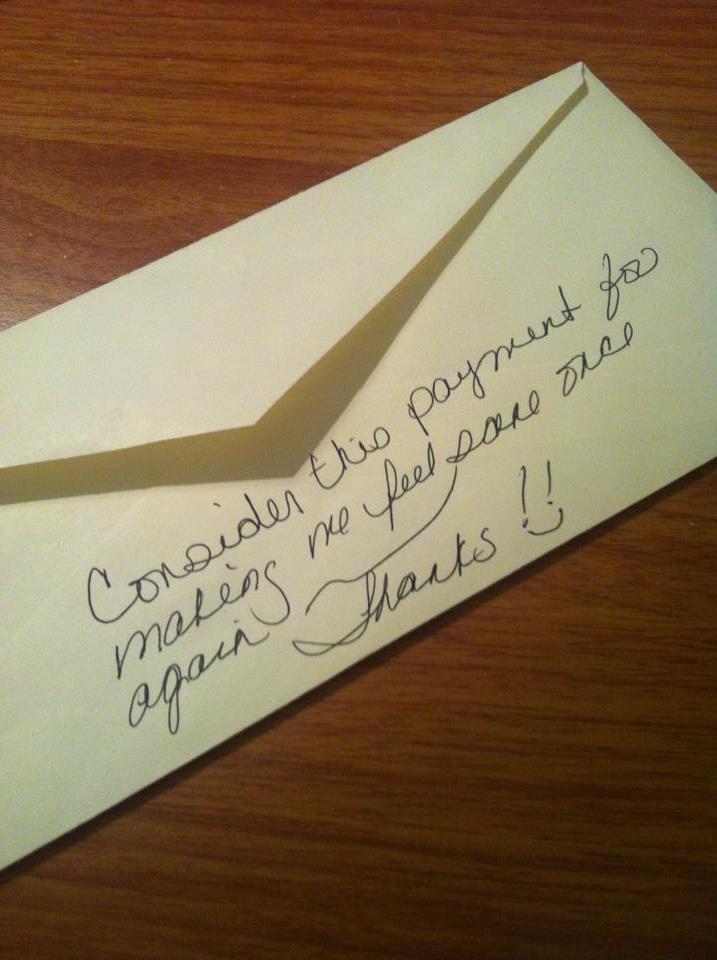 Consider this payment for
making me feel sane once
again Thanks !!